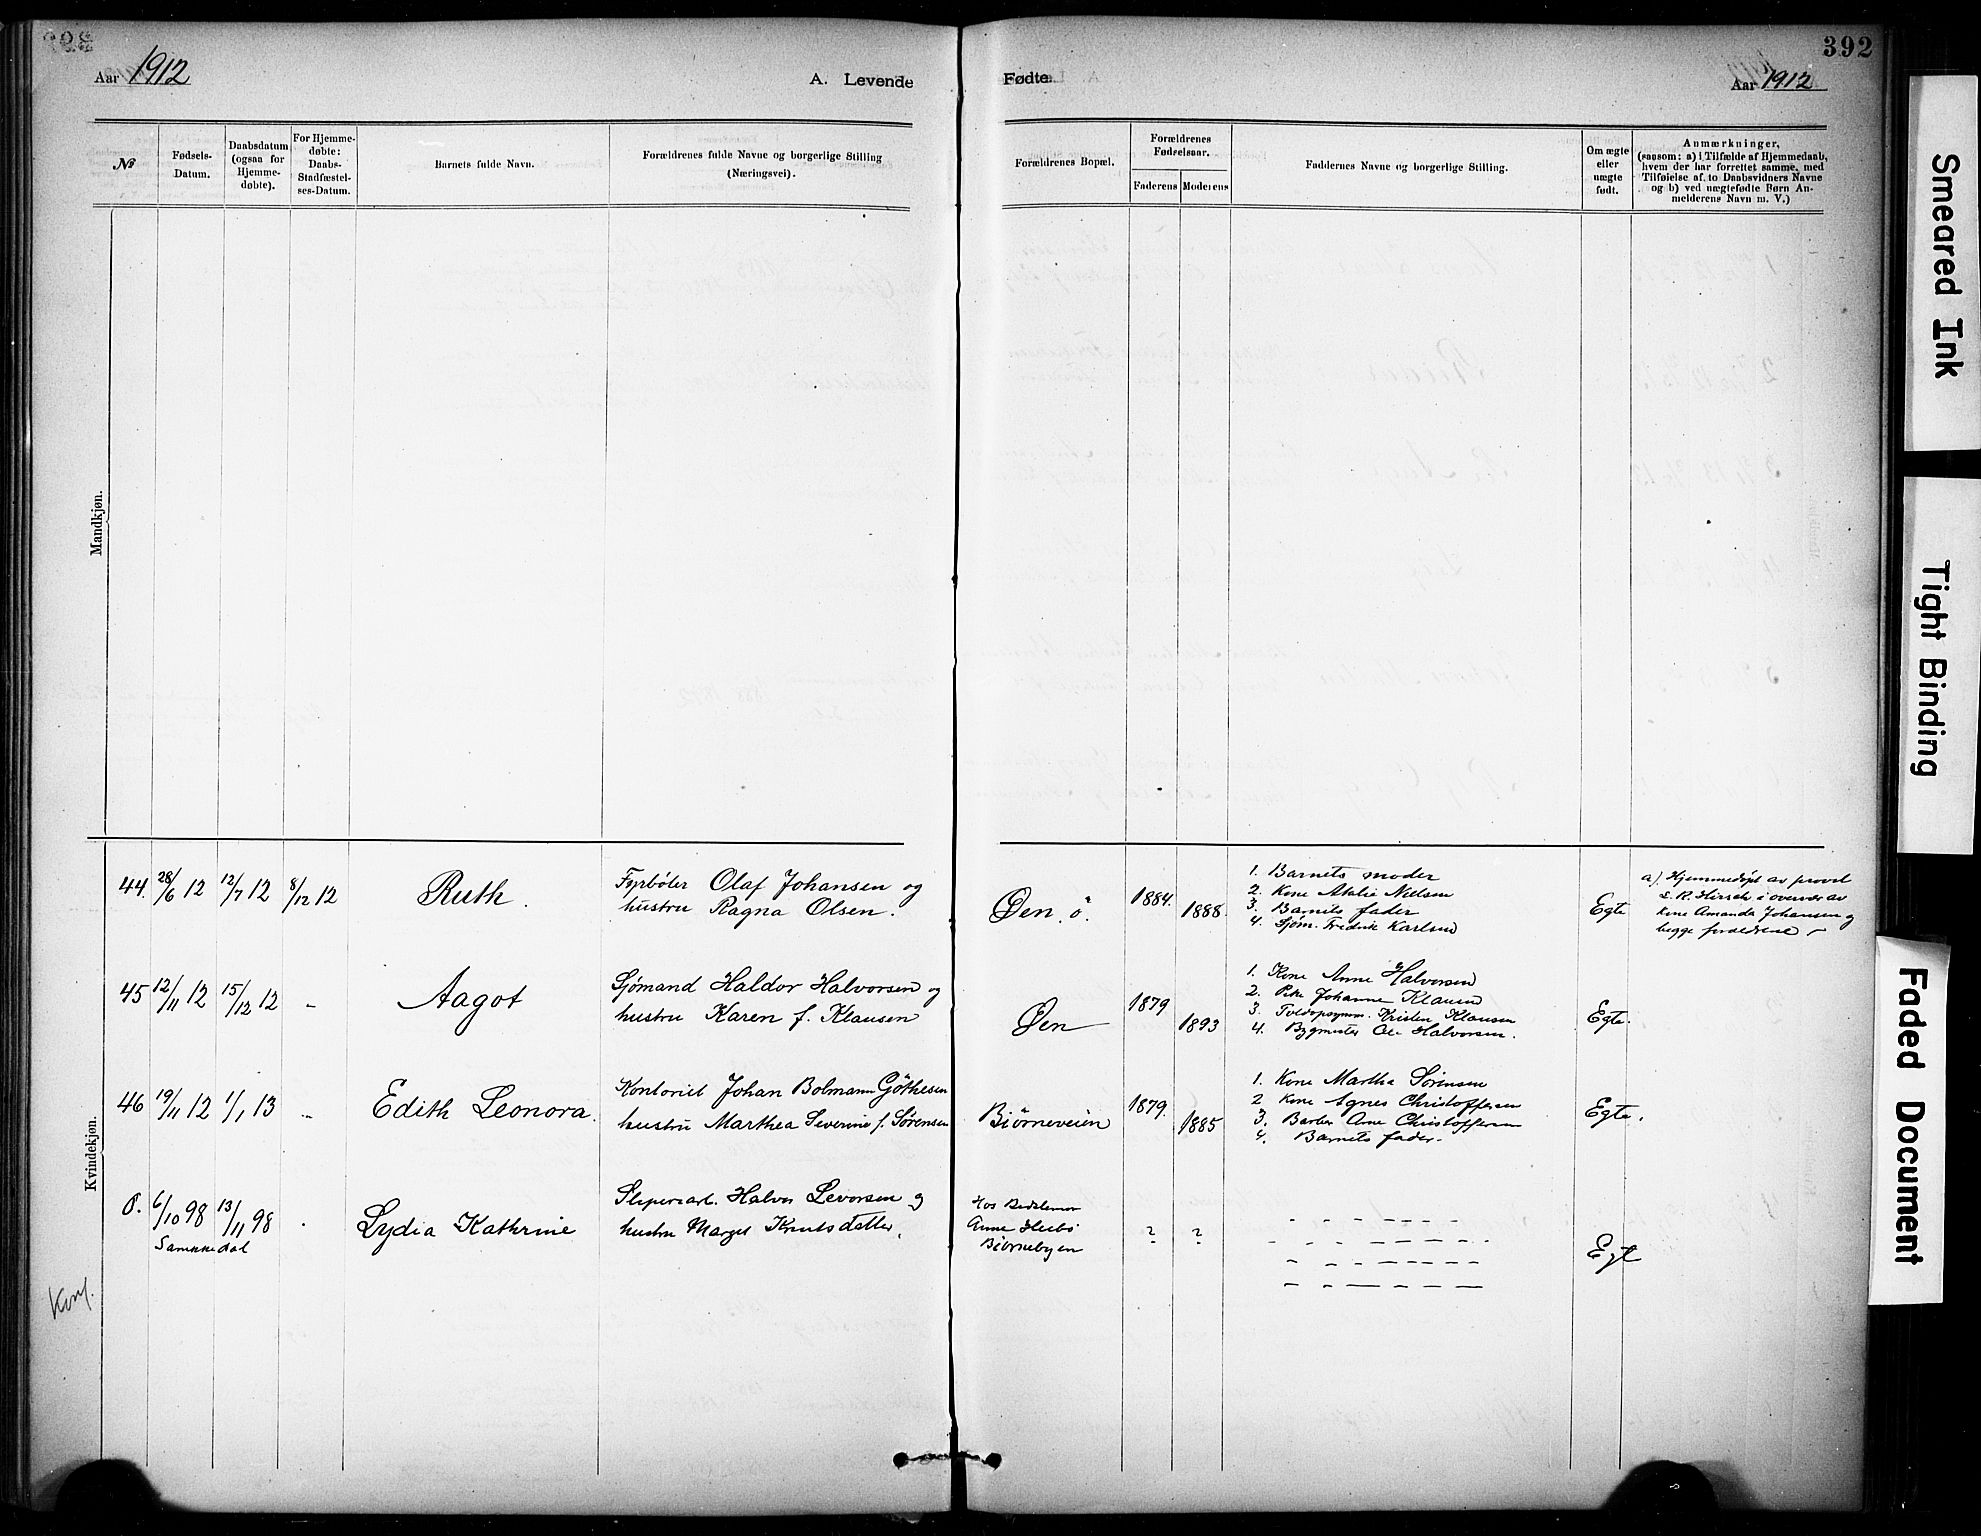 392
Aar 1912
A. Levende
Fødte
Aar 1912
№
Fødsels-
Datum.
Daabsdatum
(ogsaa for
Hjemme-
døbte).
For Hjemme-
døbte:
Daabs-
Stadfæstel-
ses-Datum.
Barnets fulde Navn.
Forældrenes fulde Navne og borgerlige Stilling
(Næringsvei).
Forældrenes Bopæl.
Forældrenes
Fødselsaar.
Faderens
Moderens
Faddernes Navne og borgerlige Stilling.
Om ægte
eller
uægte
født.
Anmærkninger,
(saasom: a) i Tilfælde af Hjemmedaab,
hvem der har forrettet samme, med
Tilføielse af to Daabsvidners Navne
og b) ved uægtefødte Børn An-
melderens Navn m. V.)
Mandkjøn.
Kvindekjøn.
44. 28/6 12 12/7 12 8/12 12
Ruth.
Fyrbøter Olaf Johansen og
hustru Ragna Olsen.
Øen. ö.
1884.
1888.
1. Barnets moder
2. Kone Atalie Nielsen
3. Barnets fader
4. Sjøm. Fredrik Karlsen
Egte
a). Hjemmedøpt av provst
L. R. Hirsch i overvær av
kone Amanda Johansen og
begge forældrene
45 12/11 12 15/12 12 -
Aagot
Sjømand Haldor Halvorsen og
hustru Karen f. Klausen
Øen
1879
1893
1. Kone Anne Halvorsen
2. Pike Johanne Klausen
3. Kristen Klausen
4. Bygmester Ole Halvorsen.
Egte.
46 19/11 12 1/1 13 -
Edith Leonora.
Kontorist Johan Bolmann Göthesen
hustru Marthea Severine f. Sørensen
Biørneveien
1879.
1885
1. Kone Martha Sørensen
2 Kone Agnes Christoffersen
3. Barber Arne Christoffersen
4. Barnets fader.
Egte.
0. 6/10 98 13/11 98
Sannikedal
Lydia Kathrine
Sliperiarb. Halvor Levorsen og
hustru Marget Knutsdatter.
Hos Bedstemor
Anne Heibö
Biörnebyen
? ?
Egte
Konf.
Smeared Ink
Tight Binding
Faded Document